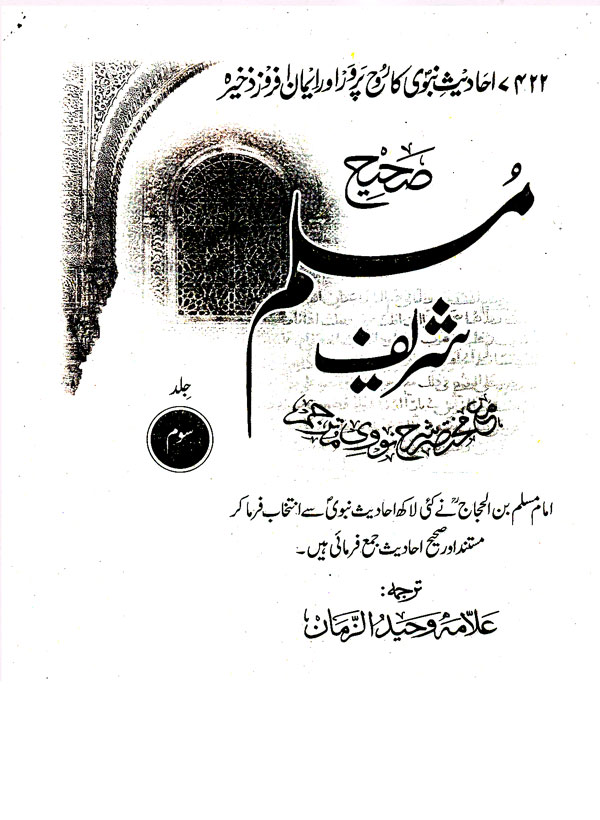 ۷۴۲۲ احادیثِ نبویؐ کا رُوح پرور اور ایمان افروز ذخیرہ
صَحِیح
مُسلم
شریف
جلد
سوم
مع مختصر شرح نووی مترجم
امام مسلم بن الحجاجؒ نے کئی لاکھ احادیث نبویؐ سے انتخاب فرما کر
مستند اور صحیح احادیث جمع فرمائی ہیں۔
ترجمہ:
علّامہ وحید الزّمان